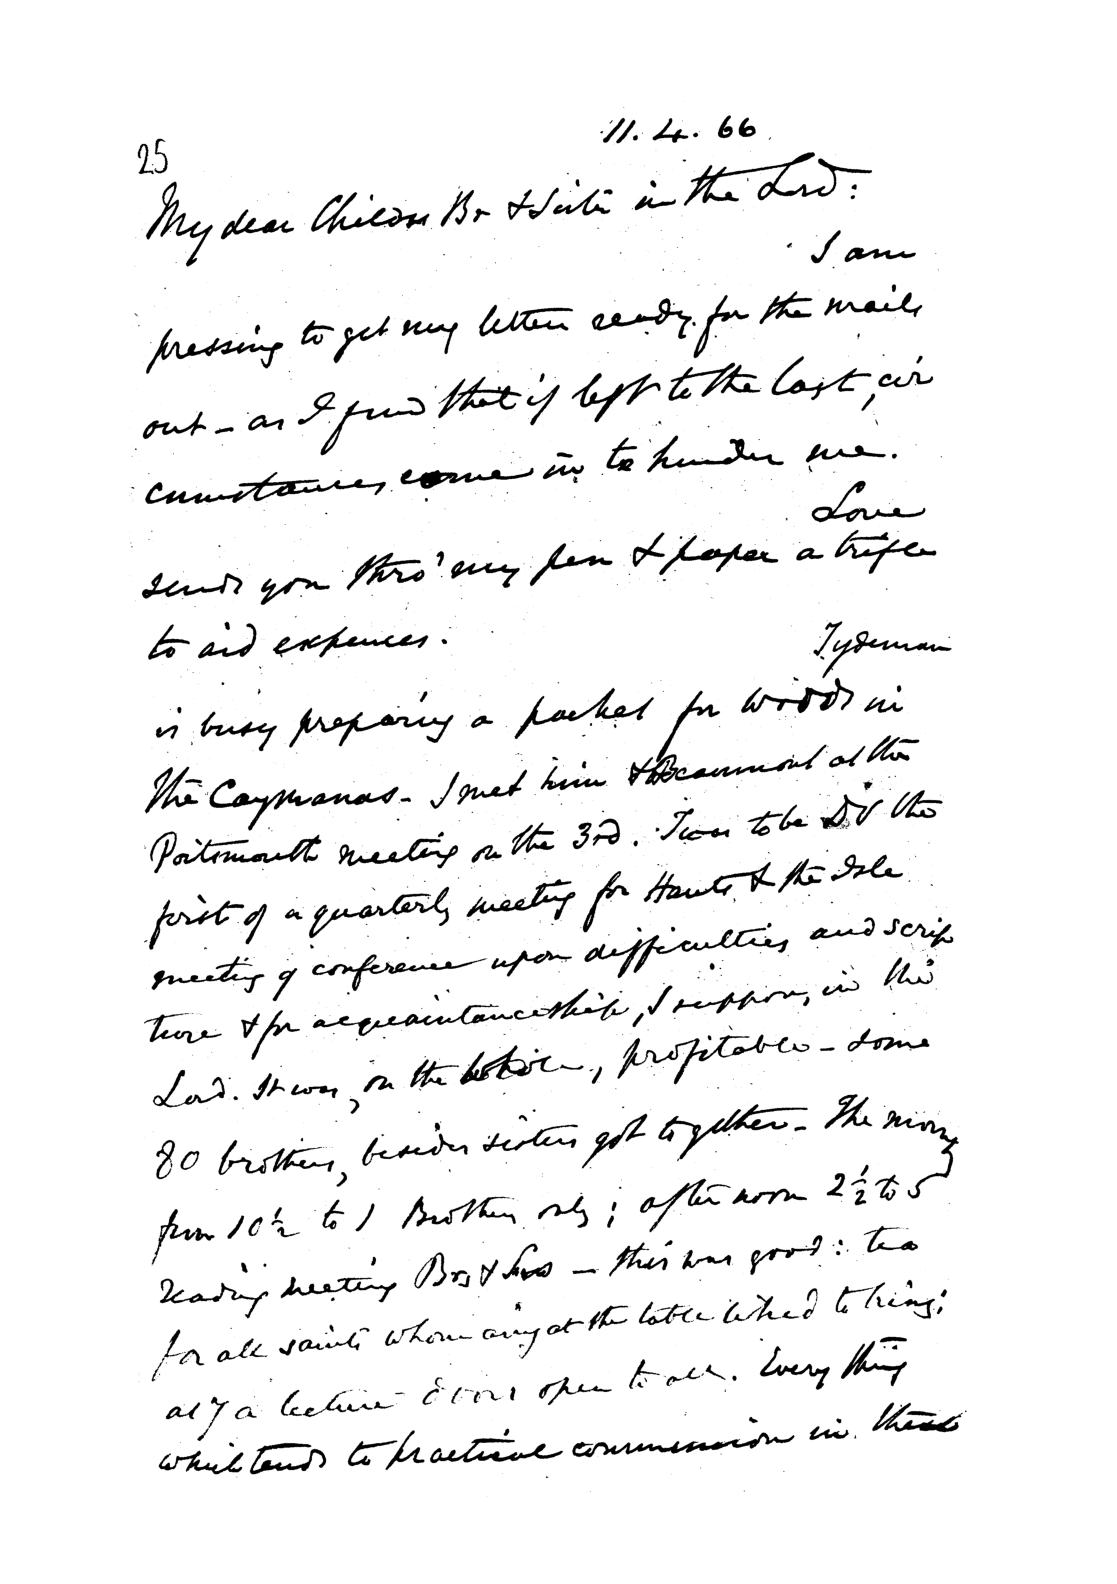 11. 4. 66
25
My dear Children Br & Sister in the Lord:
I am
pressing to get my letter ready for the mails
out - as I find that if left to the last, cir
cumstances come in to hinder me.
Love
sends you thro' my pen & paper a trifle
to aid expences.
Tydeman
is busy preparing a packet for Wodds in
the Caymanas - I met him & Beaumont at the
Portsmouth meeting on the 3rd. Twas to be DV the
first of a quarterly meeting for Hants & the Isle
meeting of conference upon difficulties and scrip
ture & for acquaintanceship, I suppose, in the
Lord. It was, on the whole, profitable - some
80 brothers, besides sisters got together - The morng
from 10½ to 1 Brothers only; afternoon 2½ to 5
reading meeting Brs & Srs - this was good: tea
for all saints whom any at the table liked to bring;
at 7 a lecture doors open to all. Every thing
which tends to practical communion in these